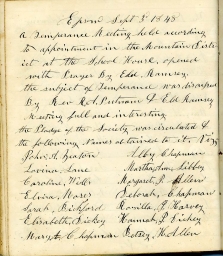 Epsom Sept 3d 1848
A Temperance Meeting held according
to appointment in the Mountain Distr-
ict at the School House, opened
with Prayer By Eld. Ramsey.
the subject of Temperance was
By Rev R. S. Putnam & Eld Ramsey
Meeting full and interesting
the Pledge of the Society was circulated &
the following Names obtained to it, Viz,
John H. Heaton
Alby Chapman
Lovina Lane
Martha Ann Libbey
Caroline
Margaret P. Allen
Elvira
Deborah Chapman
Sarah Bickford
Romilla P. Harvey
Elizabeth Dickey
Hannah P. Dickey
Mary A. Chapman
Betsey M. Allen